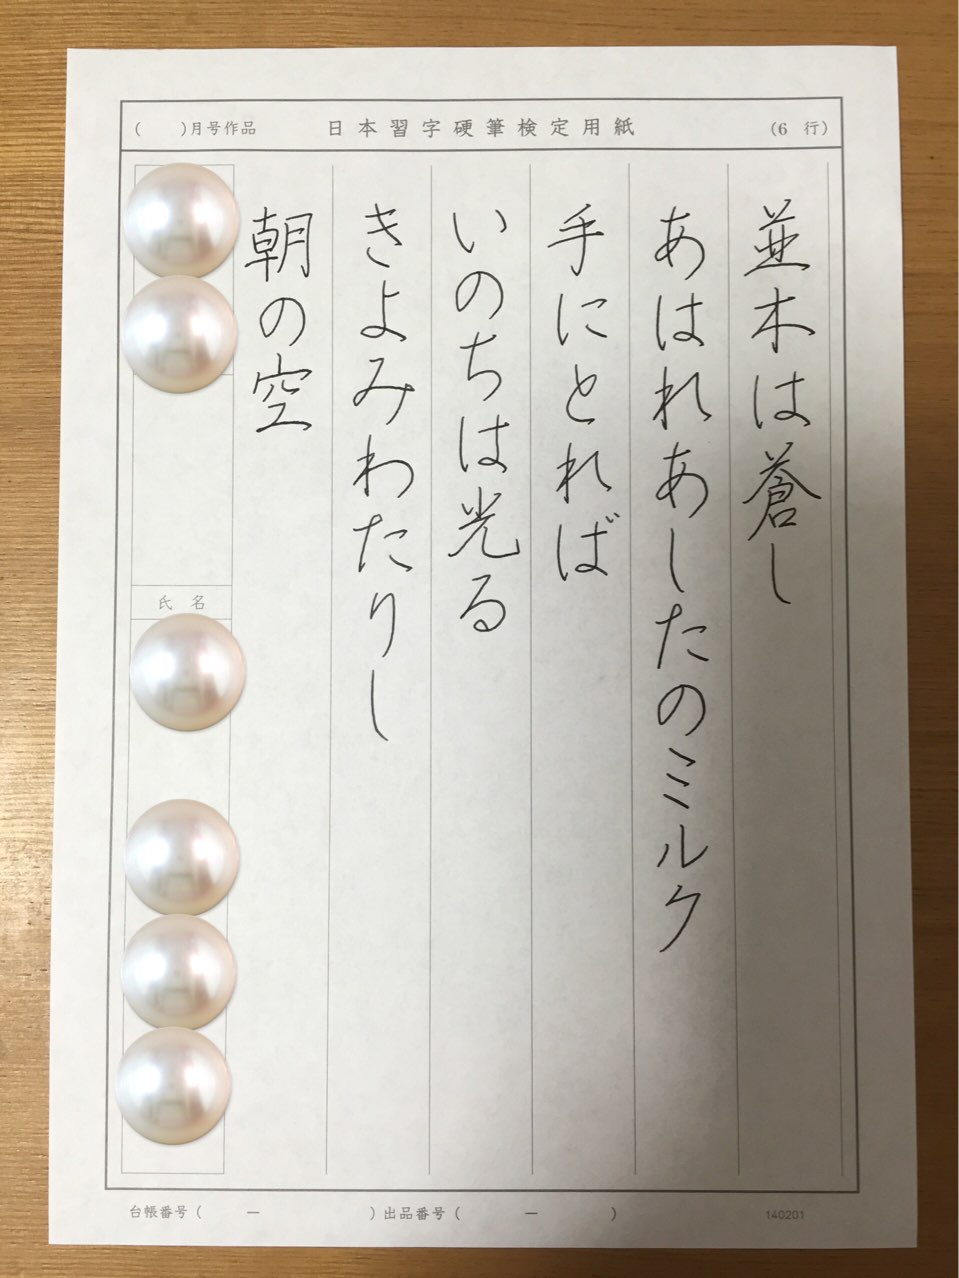 (　　)月号作品　日本習字硬筆検定用紙　(6　行)
並木は蒼し
あはれあしたのミルク
手にとれば
いのちは光る
きよみわたりし
朝の空
氏名
台帳番号(　　ー　　　　)出品番号(　　ー　　　　)　140201